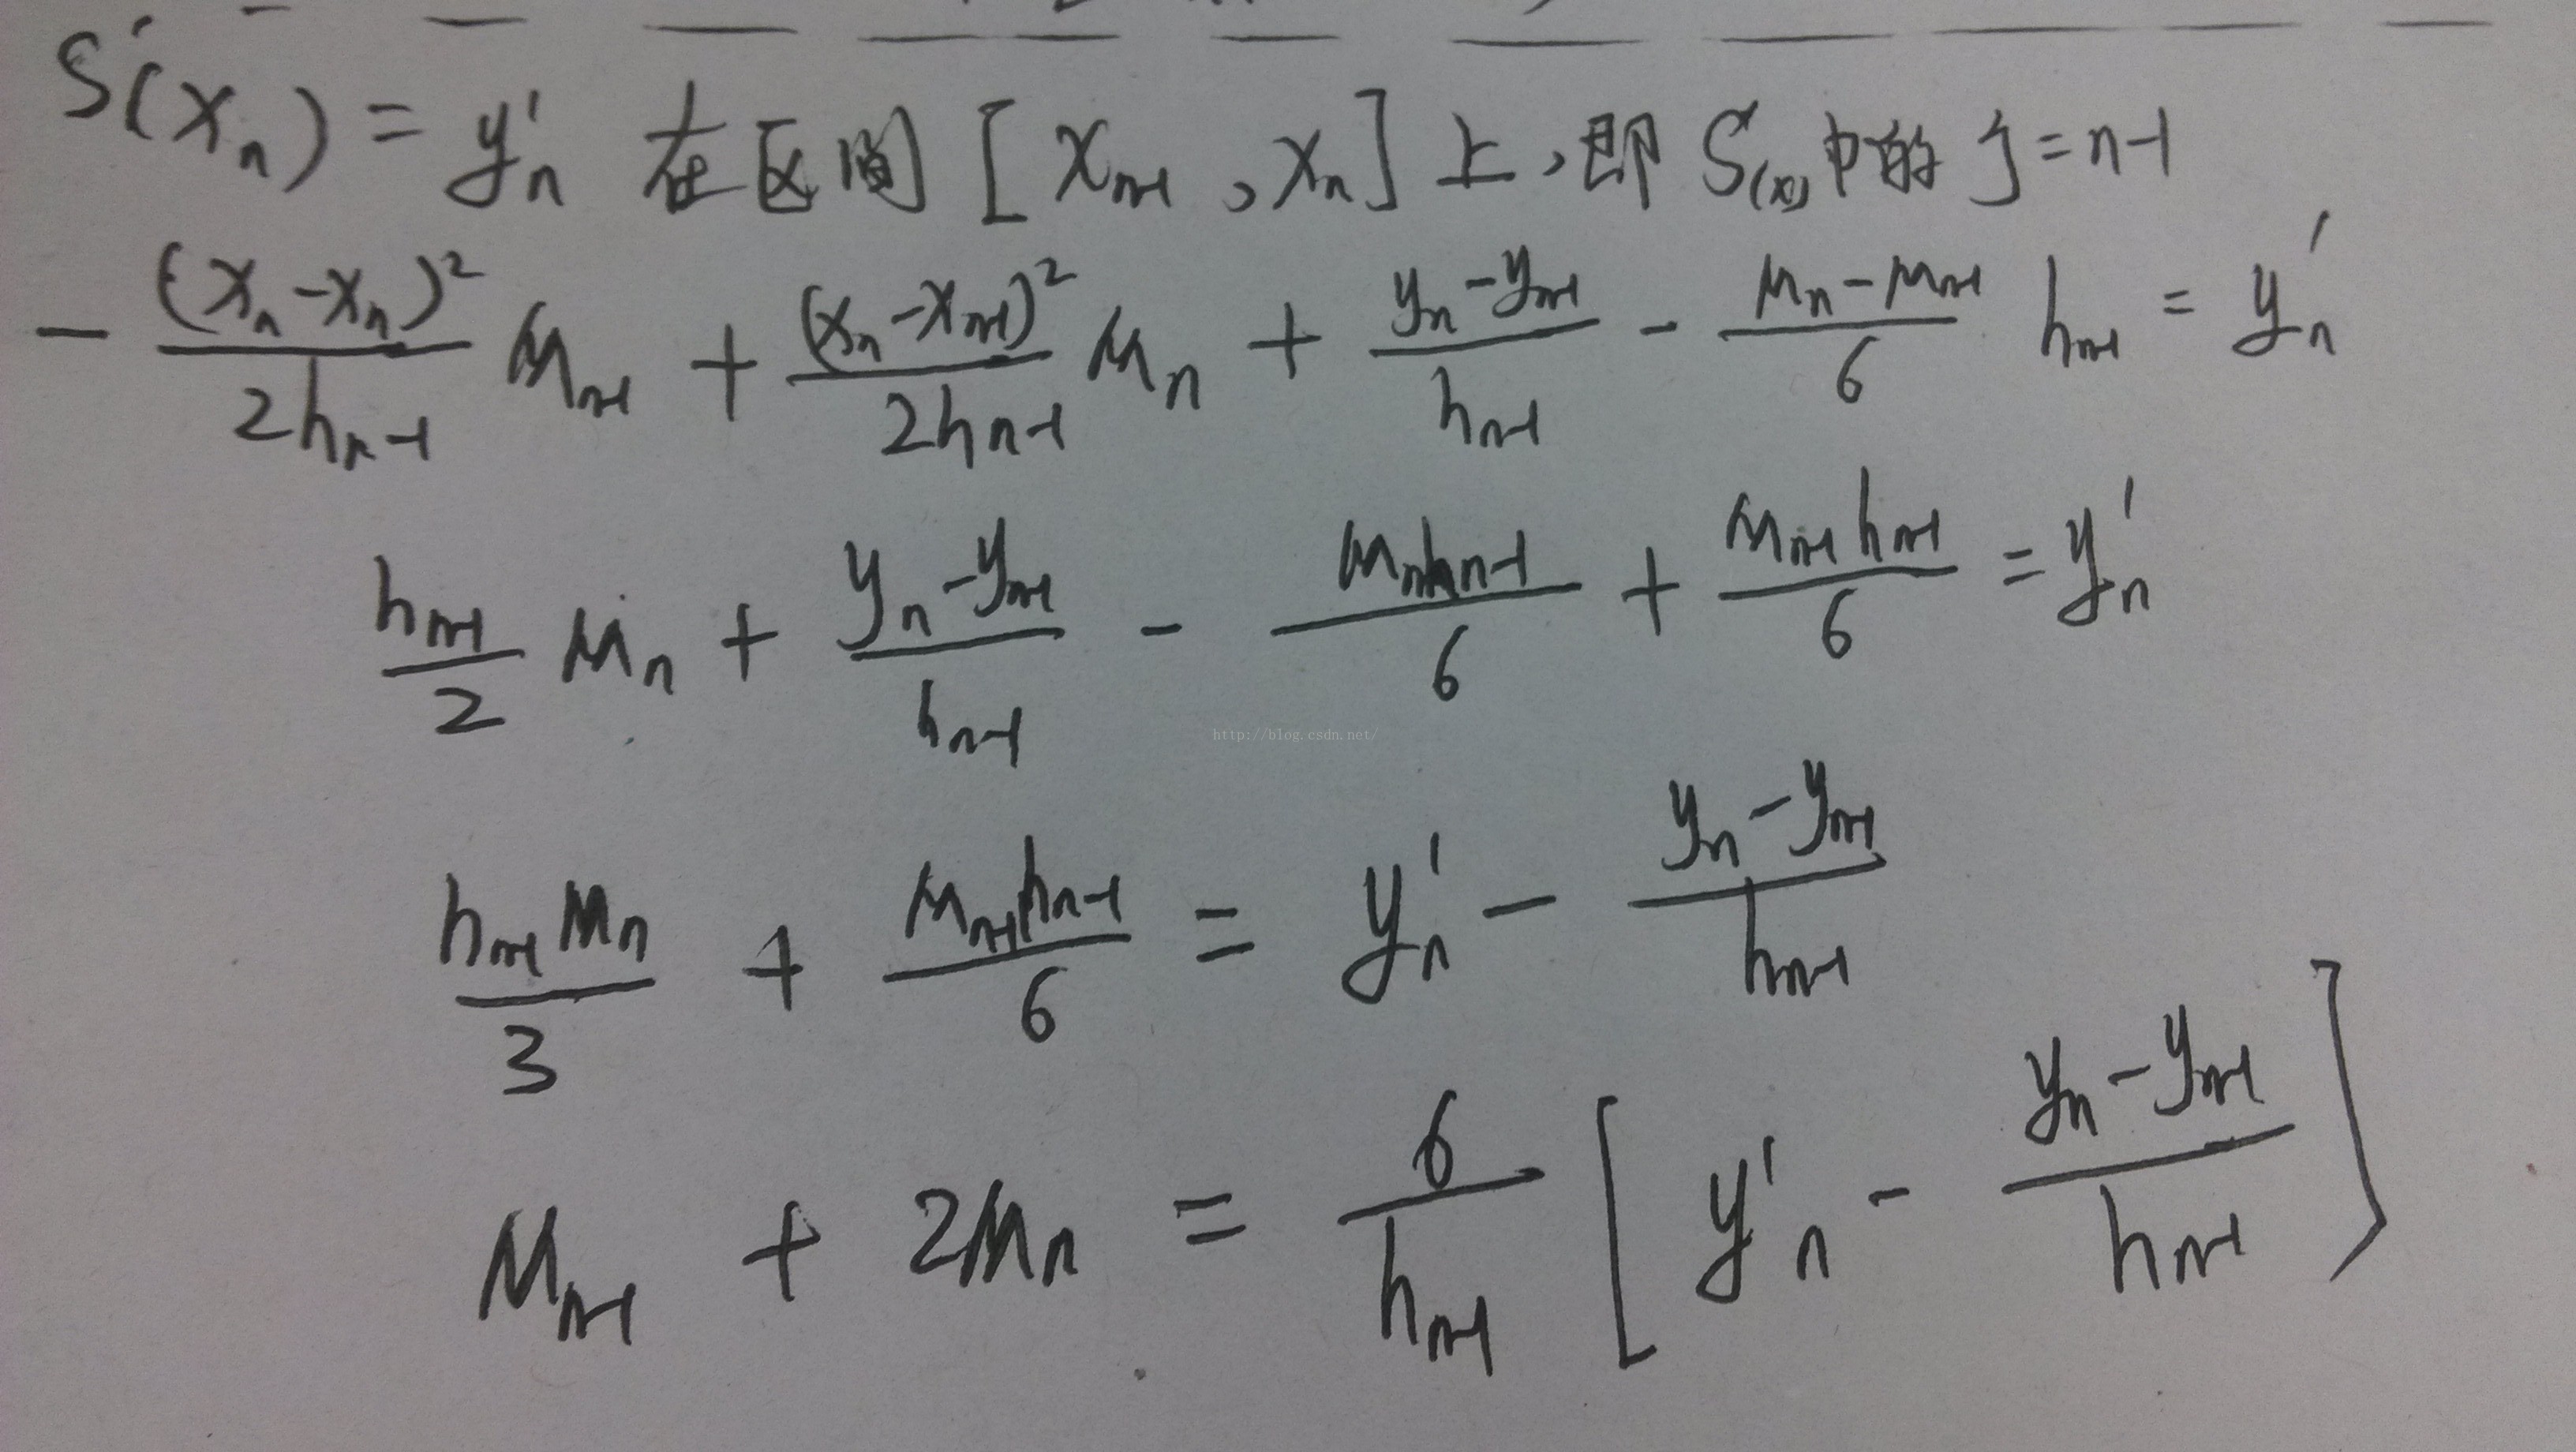 S'(xₙ) = y'ₙ 在区间 [xₙ₋₁, xₙ] 上,即 S'(x) 中的 j=n-1
-\frac{(xₙ-xₙ)²}{2hₙ₋₁} Mₙ₋₁ + \frac{(xₙ-xₙ₋₁)²}{2hₙ₋₁} Mₙ + \frac{yₙ-yₙ₋₁}{hₙ₋₁} - \frac{Mₙ-Mₙ₋₁}{6} hₙ₋₁ = y'ₙ
\frac{hₙ₋₁}{2} Mₙ + \frac{yₙ-yₙ₋₁}{hₙ₋₁} - \frac{Mₙhₙ₋₁}{6} + \frac{Mₙ₋₁hₙ₋₁}{6} = y'ₙ
http://blog.csdn.net/
\frac{hₙ₋₁Mₙ}{3} + \frac{Mₙ₋₁hₙ₋₁}{6} = y'ₙ - \frac{yₙ-yₙ₋₁}{hₙ₋₁}
Mₙ₋₁ + 2Mₙ = \frac{6}{hₙ₋₁} [y'ₙ - \frac{yₙ-yₙ₋₁}{hₙ₋₁}]